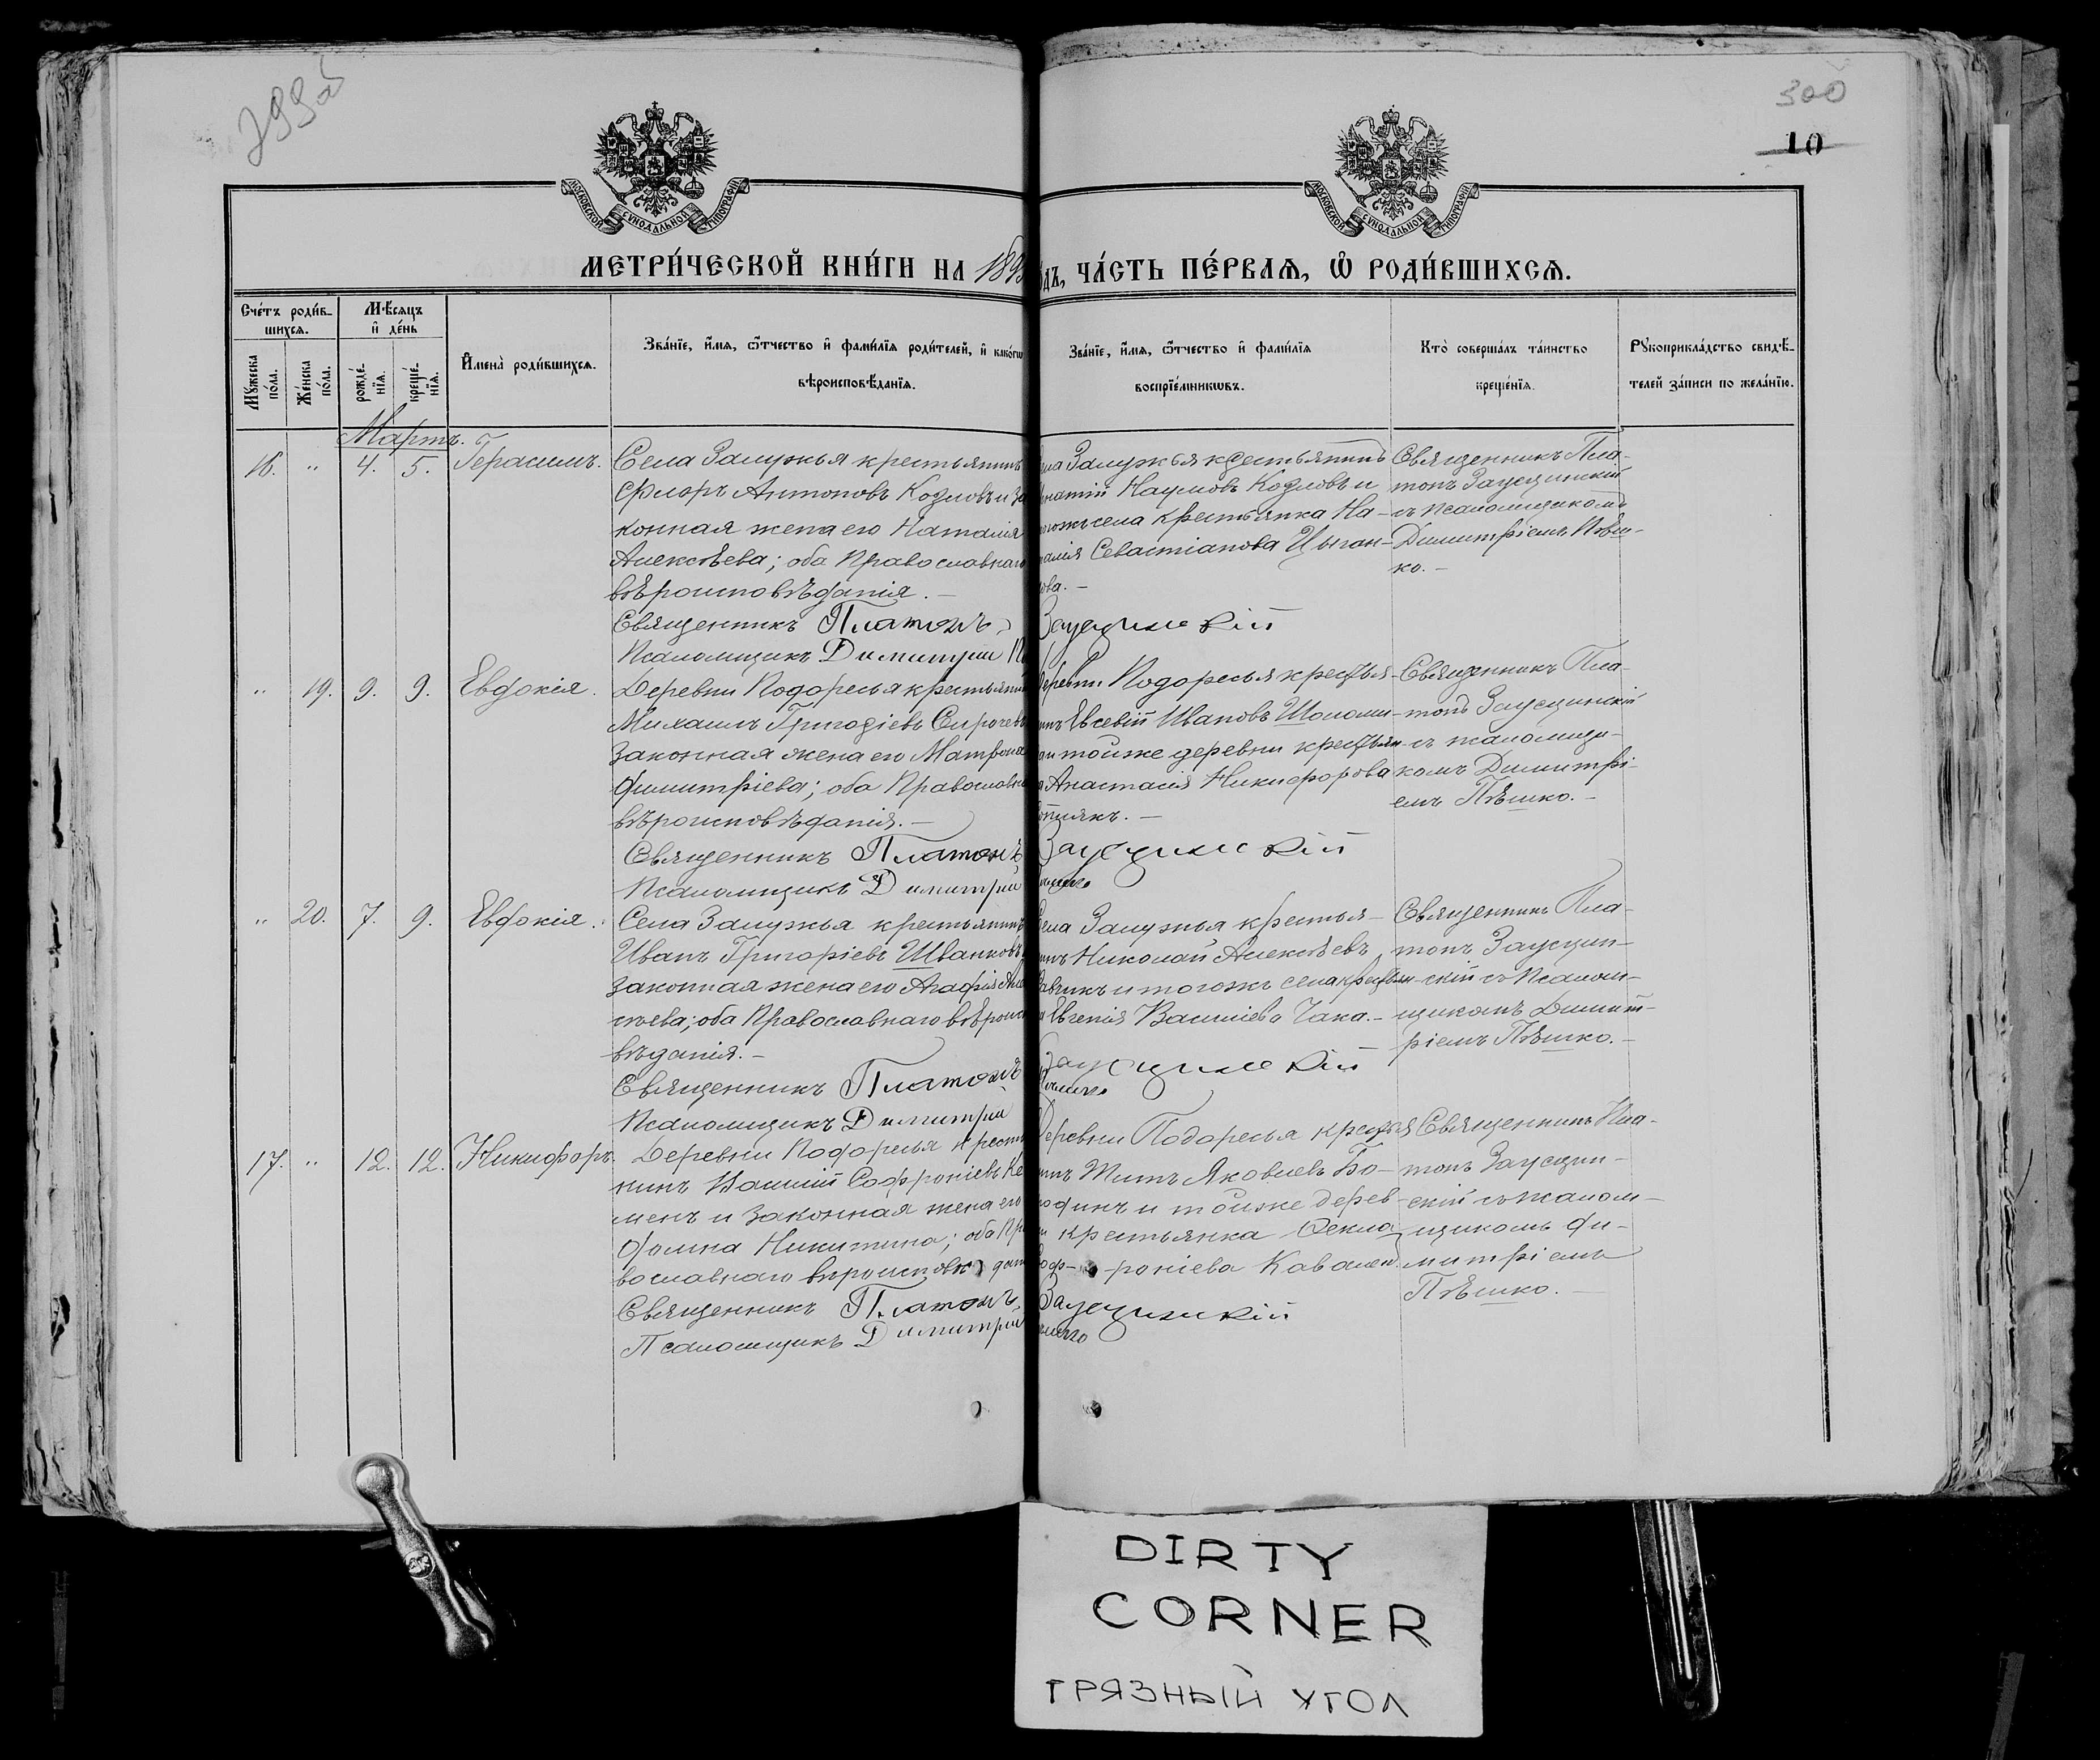 299об
300
10
МОСКОВСКОЙ СУНОДАЛЬНОЙ ТИПОГРАФІИ
МОСКОВСКОЙ СУНОДАЛЬНОЙ ТИПОГРАФІИ
МЕТРИ́ЧЕСКОЙ КНИ́ГИ НА 189
дъ, ЧА́СТЬ ПЕ́РВАѦ, Ѽ РОДИ́ВШИХСѦ.
Сче́тъ роди́в-
шихсѧ.
Мѣ́сѧцъ
и҆ де́нь
Мꙋ́жеска по́ла.
Же́нска по́ла.
рожде́-нїѧ.
креще́-нїѧ.
И҆мена̀ роди́вшихсѧ.
Зва́нїе, и҆́мѧ, ѻ҆́тчество и҆ фами́лїѧ роди́телей, и҆ како́гѡ
вѣроисповѣ́данїѧ.
Зва́нїе, и҆́мѧ, ѻ҆́тчество и҆ фами́лїѧ
воспрїе́мникѡвъ.
Кто̀ соверша́лъ та́инство
креще́нїѧ.
Рꙋкоприкла́дство свидѣ́-
телей за́писи по жела́нїю.
Мартъ.
16. " 4. 5. Герасимъ.
Села Залужья крестьянинъ
Флоръ Антоновъ Козловъ и за
конная жена его Наталія
Алексѣева; оба Православнаго
вѣроисповѣданія. —
Священникъ Платонъ
Псаломщикъ Димитрій
ла Залужья крестьянинъ
натій Наумовъ Козловъ и
тогожъ села крестьянка На-
талія Севастіанова Цыган-
кова. —
Заусцинскій
Священникъ Пла-
тонъ Заусцинскій
съ псаломщикомъ
Димитріемъ Пѣш-
ко. —
" 19. 9. 9. Евдокія.
Деревни Подоресья крестьянин
Михаилъ Григоріевъ Сирочевъ
законная жена его Матрона
Димитріева; оба Православн
вѣроисповѣданія. —
Священникъ Платонъ
Псаломщикъ Димитрій
Деревни Подоресья крестья-
нинъ Евсевій Ивановъ Шоломи-
тойже деревни крестьян
Анастасія Никифорова
Заусцинскій
Священникъ Пла-
тонъ Заусцинскій
съ псаломщи-
комъ Димитрі-
емъ Пѣшко. —
" 20. 7. 9. Евдокія.
Села Залужья крестьянинъ
Иванъ Григоріевъ Шванковъ
законная жена его Агафія Але
сѣева; оба Православнаго вѣроиспо
вѣданія. —
Священникъ Платонъ
Псаломщикъ Димитрій
Села Залужья крестья-
нинъ Николай Алексѣевъ
и тогожъ села крестьян
Евгенія Василіева Чака. —
Заусцинскій
Священникъ Пла-
тонъ Заусцин-
скій съ псалом-
щикомъ Димит-
ріемъ Пѣшко. —
17. " 12. 12. Никифоръ.
Деревни Подоресья крестья
нинъ Василій Софроніевъ Ке
менъ и законная жена его
Домна Никитина; оба Пра
вославнаго вѣроисповѣдан
Священникъ Платонъ
Псаломщикъ Димитрій
Деревни Подоресья крестья
нинъ Титъ Яковлевъ Бо-
родинъ и тойже дерев
крестьянка Ѳекла
Соф- роніева Кавален
Заусцинскій
Священникъ Пла-
тонъ Заусцин-
скій съ псалом-
щикомъ Ди-
митріемъ
Пѣшко. —
DIRTY
CORNER
ГРЯЗНЫЙ УГОЛ